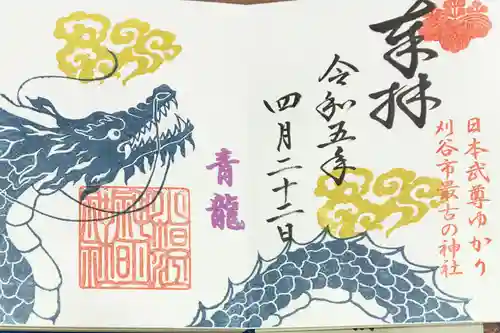 奉拝
令和五年
四月二十二日
日本武尊ゆかり
刈谷市最古の神社
青龍